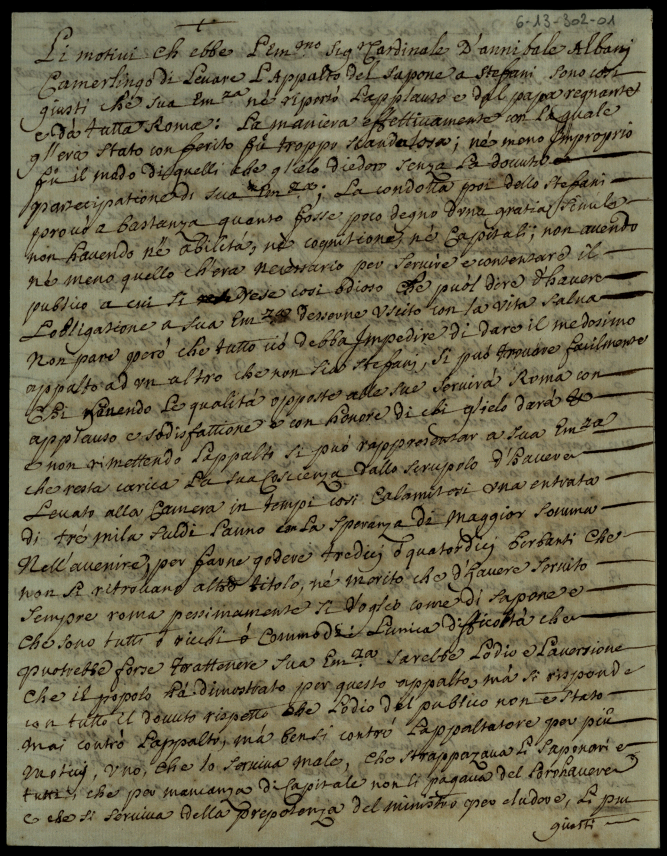 6-13-302-01
+
Li motivi ch ebbe L'Em.mo Sig.r Cardinale D'annibale Albani
Camerlingo di Levare L'Appalto del Sapone a Stefani sono così
giusti che sua Em.za ne riportò L'applauso e dal papa regnante
e da tutta Roma: La maniera effettivamente con la quale
gl'era stato conferito fù troppo scandalosa; nè meno Improprio
fù il modo di quelli che gl'elo diedero senza La dovuta
participatione di sua Em.za; La condotta poi dello Stefani
provò a bastanza quanto fosse poco degno d'una gratia simile
non havendo nè abilità, nè cognitione, nè Capitali; non avendo
nè meno quello ch'era necessario per servire e contentare il
publico a cui si rese così odioso che può dire d'havere
L'obligatione a sua Em.za d'esserne uscito con la vita salva
Non pare però che tutto ciò debba Impedire di dare il medesimo
appalto ad un altro che non sia Stefani, si può trovare facilmente
Chi havendo Le qualità opposte alle sue servirà Roma con
applauso e sodisfattione e con honore di chi glielo darà
e non rimettendo L'appalto si può rappresentar a sua Em.za
che resta carica La sua Coscienza dallo scrupolo d'havere
Levato alla Camera in tempi così Calamitosi una entrata
di trè mila scudi L'anno con La speranza di maggior somma
Nell'avenire, per farne godere tredici ò quatordici berbanti che
non si ritrovano altro titolo, nè merito che d'havere servito
sempre roma pessimamente si d'oglio come di sapone e
che sono tutti ò ricchi ò Commodi: L'unica difficoltà che
puotrebbe forse trattenere sua Em.za sarebbe L'odio e L'aversione
Che il popolo hà dimostrato per questo appalto, mà si risponde
con tutto il dovuto rispetto che L'odio del publico non è stato
mai contrò L'appalto, mà bensì contrò L'appaltatore per più
motivi, uno, che lo serviva male, che strappazava Li Saponari e
tutti, che per mancanza di Capitale non li pagava del Loro havere
e che si serviva della prepotenza del ministro per eludere, Li più
giusti